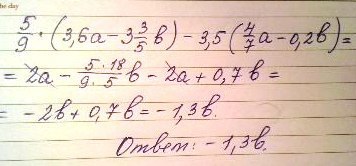 the day
5/9 · (3,6a - 3 3/5 b) - 3,5 (4/7 a - 0,2b) =
= 2a - 5·18/9·5 b - 2a + 0,7b =
= -2b + 0,7b = -1,3b.
Ответ: -1,3b.